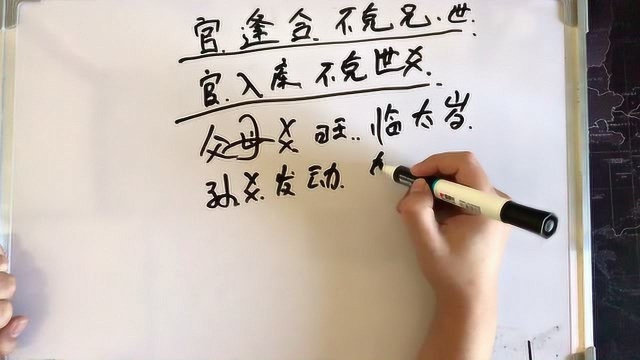 官.逢合 不克兄.世.
官.入库 不克世爻.
父母爻旺..临太岁.
孙爻.发动.